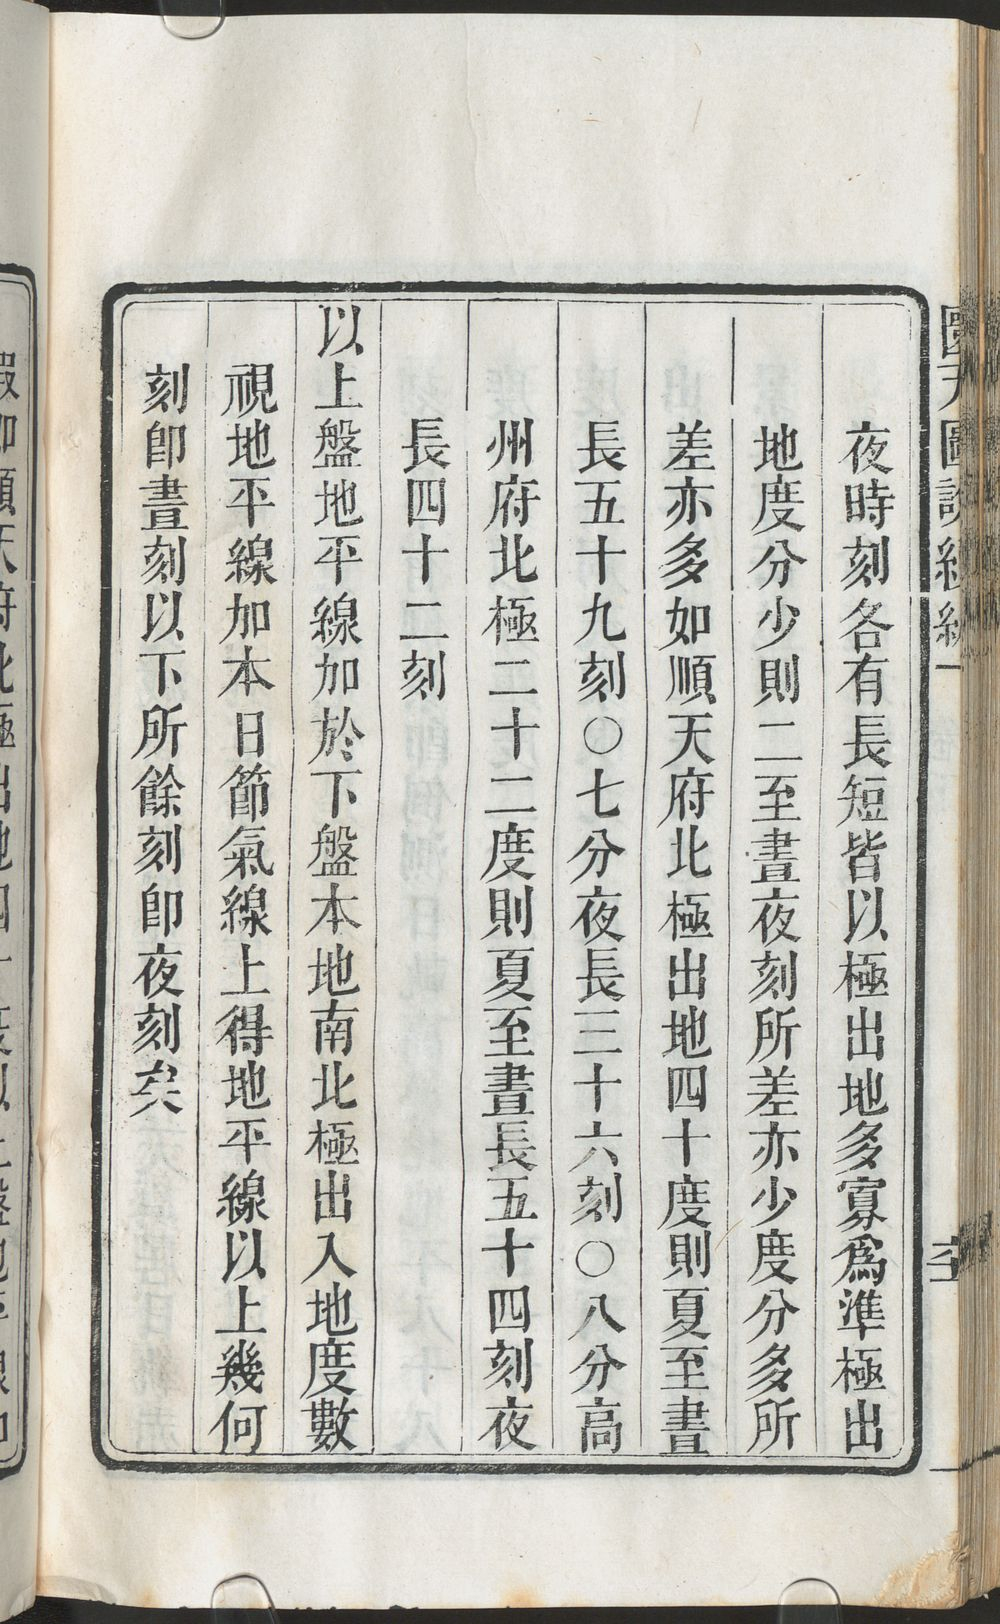 夜時刻各有長短皆以極出地多寡爲準極出
地度分少則二至晝夜刻所差亦少度分多所
差亦多如順天府北極出地四十度則夏至晝
長五十九刻○七分夜長三十六刻○八分高
州府北極二十二度則夏至晝長五十四刻夜
長四十二刻
以上盤地平線加於下盤本地南北極出入地度數
視地平線加本日節氣線上得地平線以上幾何
刻卽晝刻以下所餘刻卽夜刻矣